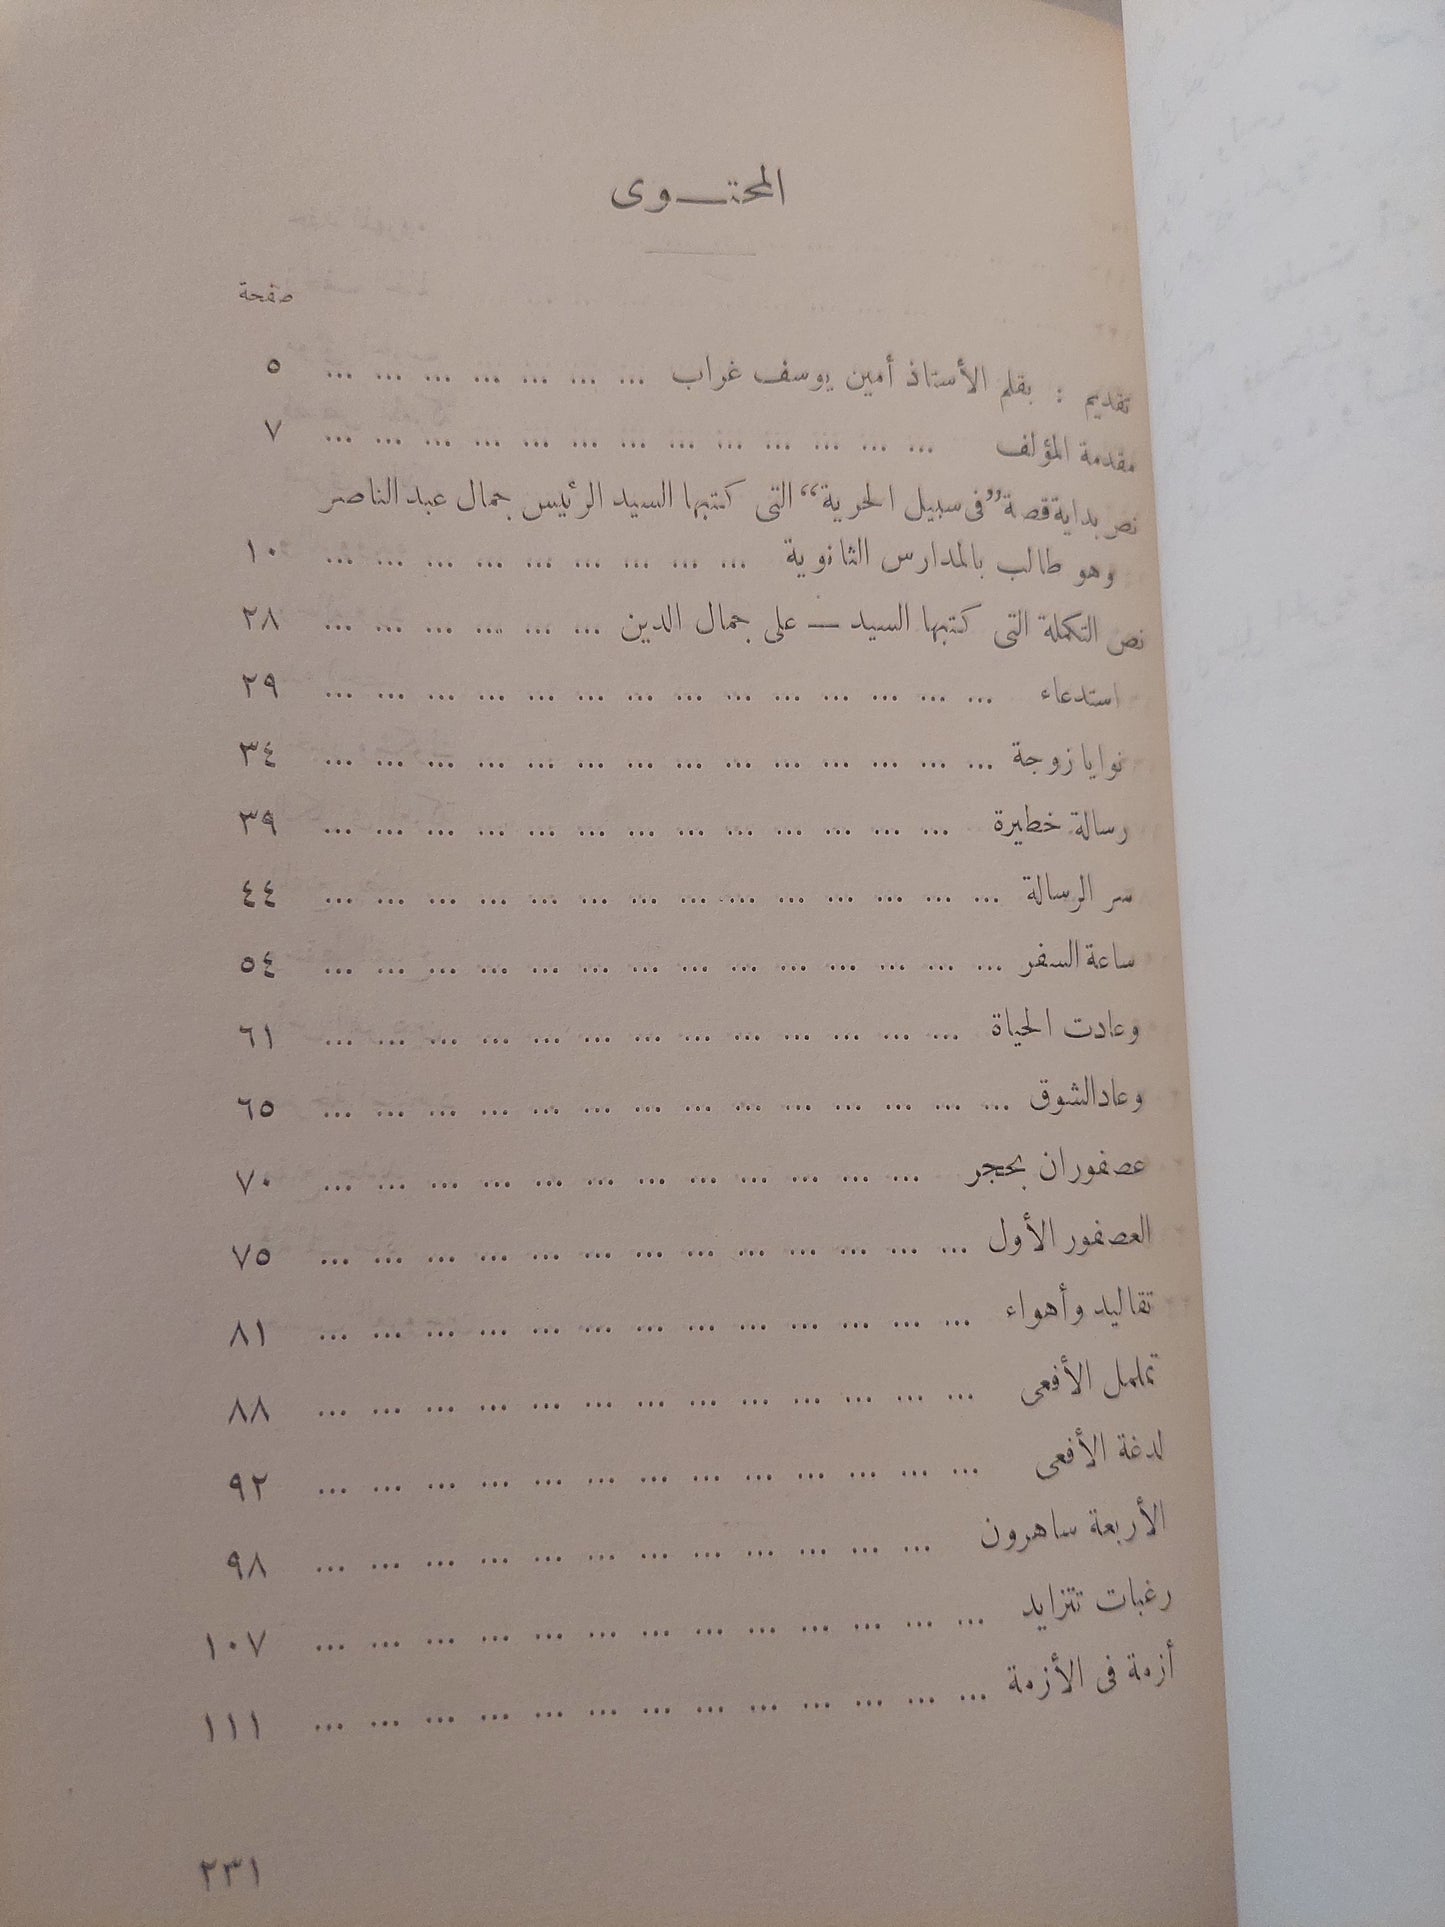 المحتــوى
صفحة
تقديم : بقلم الأستاذ أمين يوسف غراب ... ... ... ... ... ... ... ٥
مقدمة المؤلف ... ... ... ... ... ... ... ... ... ... ... ... ... ٧
نص بداية قصة ”فى سبيل الحرية“ التى كتبها السيد الرئيس جمال عبد الناصر
وهو طالب بالمدارس الثانوية ... ... ... ... ... ... ... ... ... ١٠
نص التكملة التى كتبها السيد — على جمال الدين ... ... ... ... ... ... ٢٨
استدعاء ... ... ... ... ... ... ... ... ... ... ... ... ... ... ٢٩
نوايا زوجة ... ... ... ... ... ... ... ... ... ... ... ... ... ... ٣٤
رسالة خطيرة ... ... ... ... ... ... ... ... ... ... ... ... ... ٣٩
سر الرسالة ... ... ... ... ... ... ... ... ... ... ... ... ... ... ٤٤
ساعة السفر ... ... ... ... ... ... ... ... ... ... ... ... ... ... ٥٤
وعادت الحياة ... ... ... ... ... ... ... ... ... ... ... ... ... ٦١
وعاد الشوق ... ... ... ... ... ... ... ... ... ... ... ... ... ... ٦٥
عصفوران بحجر ... ... ... ... ... ... ... ... ... ... ... ... ٧٠
العصفور الأول ... ... ... ... ... ... ... ... ... ... ... ... ... ٧٥
تقاليد وأهواء ... ... ... ... ... ... ... ... ... ... ... ... ... ٨١
تململ الأفعى ... ... ... ... ... ... ... ... ... ... ... ... ... ٨٨
لدغة الأفعى ... ... ... ... ... ... ... ... ... ... ... ... ... ٩٢
الأربعة ساهرون ... ... ... ... ... ... ... ... ... ... ... ... ٩٨
رغبات تتزايد ... ... ... ... ... ... ... ... ... ... ... ... ... ١٠٧
أزمة فى الأزمة ... ... ... ... ... ... ... ... ... ... ... ... ... ١١١
٢٣١